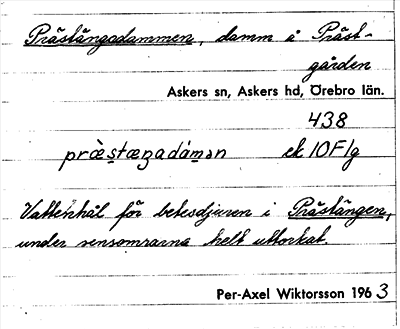 Prästängadammen, damm å Präst-
gården
Askers sn, Askers hd, Örebro län.
438
præ̀stæŋadámən ek 10F1g
Vattenhål för betesdjuren i Prästängen,
under sensomrarna helt uttorkat.
Per-Axel Wiktorsson 1963